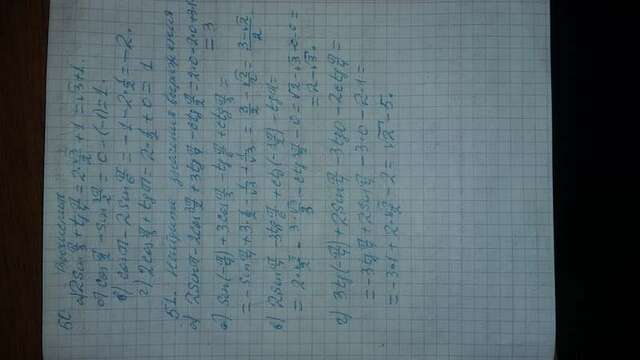 50. Вычислим
а) 2sin π/3 + tg π/4 = 2·√3/2 + 1 = √3+1.
б) cos π/2 - sin 3π/2 = 0-(-1)=1.
в) cos π - 2sin π/6 = -1-2·1/2 = -2.
г) 2cos π/3 + tg π = 2·1/2 + 0 = 1
51. Найдите значения выражения
а) 2sin π - 2cos 3π/2 + 3tg π/4 - ctg π/2 = 2·0-2·0+3·1
= 3
б) sin(-π/4) + 3cos π/3 - tg π/6 + ctg π/3 =
= -sin π/4 + 3·1/2 - 1/√3 + 1/√3 = 3/2 - √2/2 = 3-√2/2.
в) 2sin π/4 - 3tg π/6 + ctg(-3π/2) - tg π =
= 2·√2/2 - 3·√3/3 - ctg 3π/2 - 0 = √2-√3-0-0 =
= 2-√3.
г) 3tg(-π/4) + 2sin π/4 - 3tg0 - 2ctg π/4 =
= -3tg π/4 + 2sin π/4 - 3·0 - 2·1 =
= -3·1 + 2·√2/2 - 2 = √2-5.